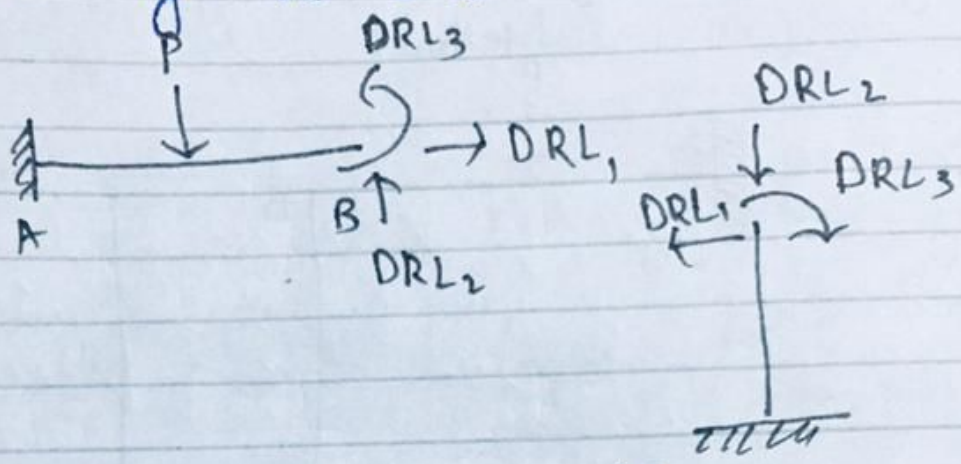 P
DRL3
DRL1
A
B
DRL2
DRL2
DRL3
DRL1